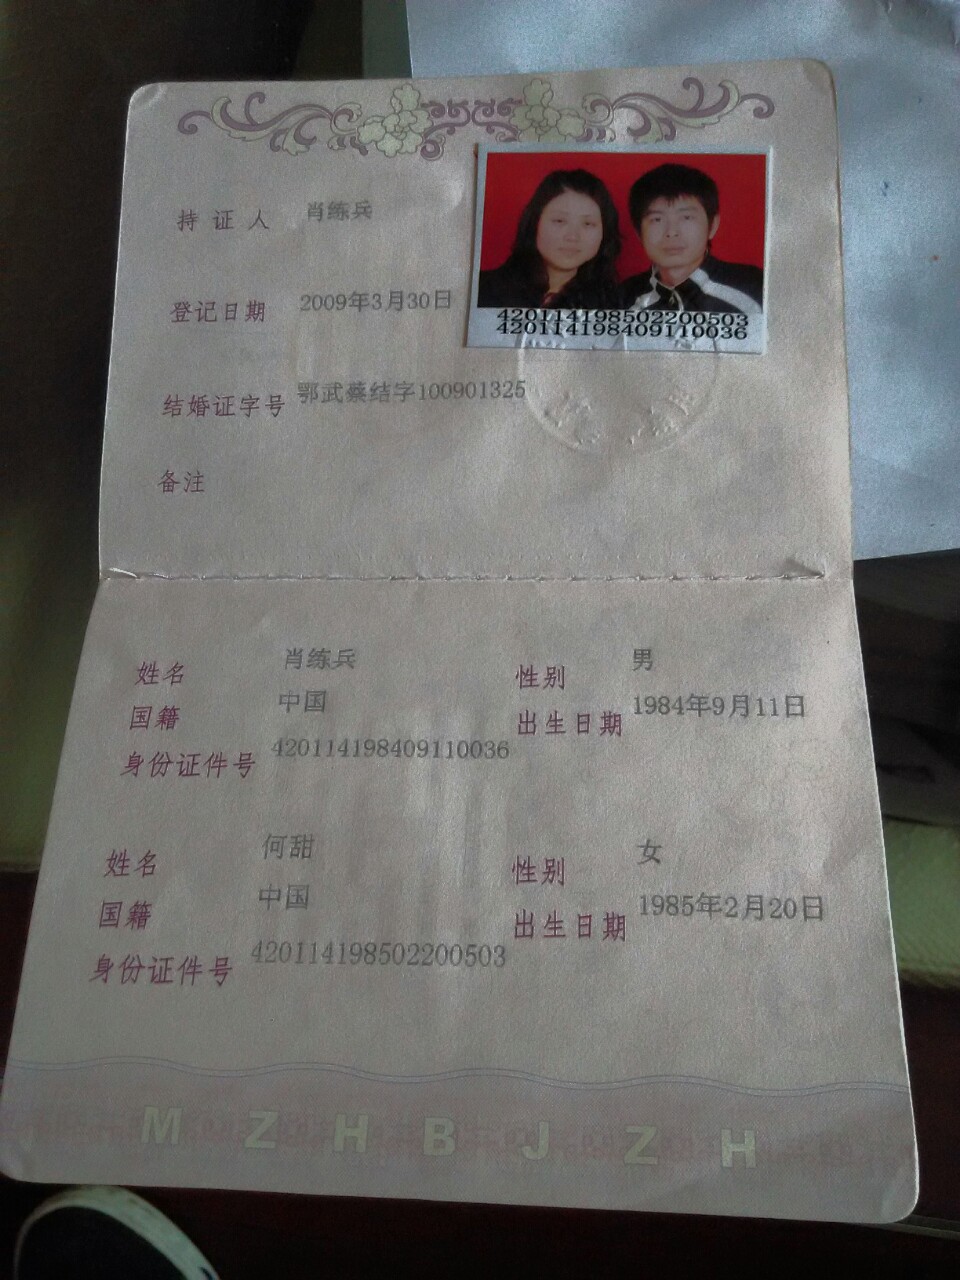 持证人 肖练兵
登记日期 2009年3月30日
420114198502200503
420114198409110036
结婚证字号 鄂武蔡结字100901325
备注
姓名 肖练兵 性别 男
国籍 中国 出生日期 1984年9月11日
身份证件号 420114198409110036
姓名 何甜 性别 女
国籍 中国 出生日期 1985年2月20日
身份证件号 420114198502200503
MZHBJZH